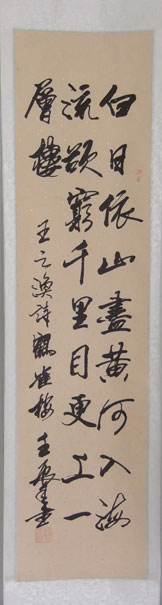 白日依山盡黄河入海
流欲窮千里目更上一
層樓
王之渙詩鸛雀樓